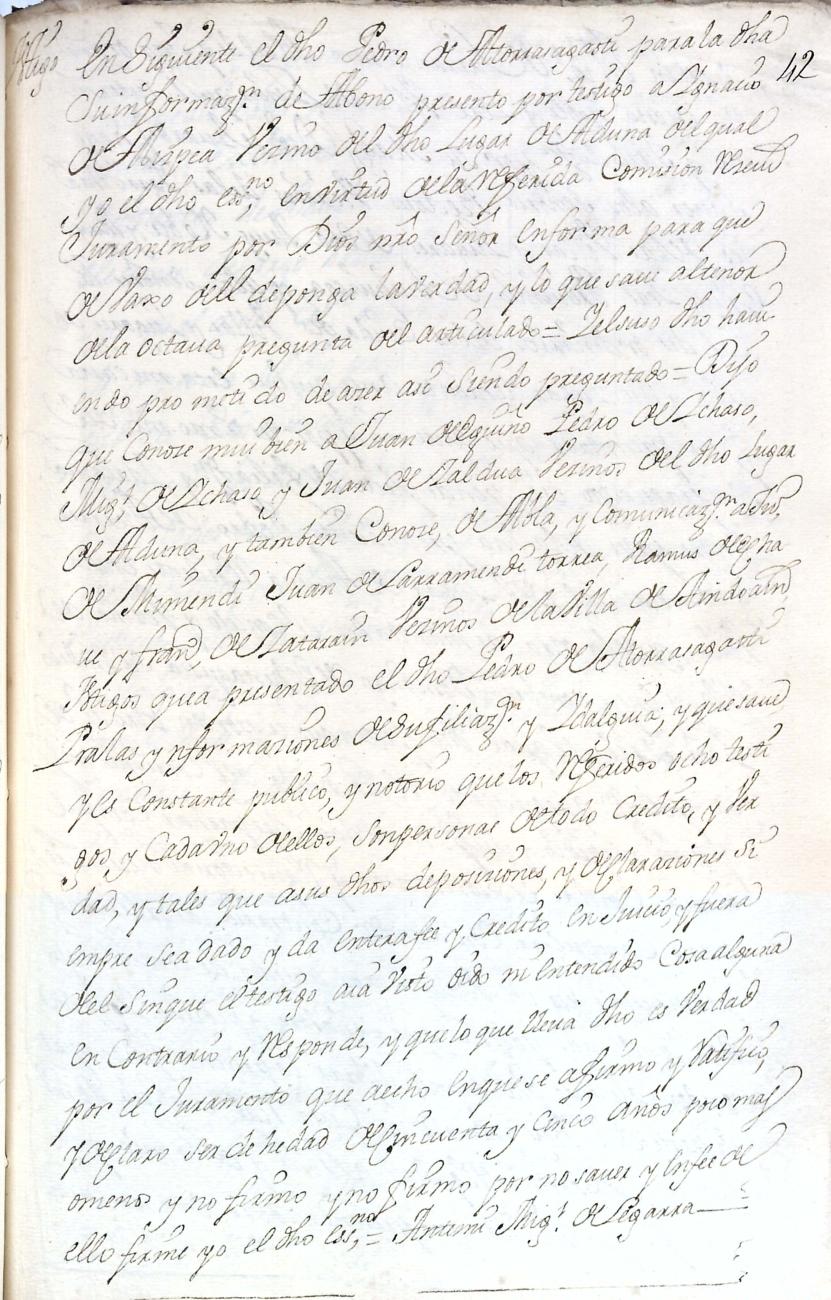 42
tigo En Siguiente el dho Pedro de Atorrasagasti para la dha
Su informazn de Abono presento por testigo a Ygnacio
de Aizpea Vezino del dho Lugar de Aduna del qual
yo el dho essno, en virtud de la Referida Comision Reciui
Juramento por Dios nro Señor en forma para que
de vaxo dell deponga la verdad, y lo que saue al tenor
de la octaua pregunta del articulado = Y el suso dho haui
endo prometido de azer asi Siendo preguntado = Dijo
que Conoze mui bien a Juan de Eguino Pedro de Ychaso,
Migl, de Ychaso, y Juan de Zaldua Vezinos del dho Lugar
de Aduna, y tambien Conoze, de Abla, y Comunicazn a
de Mimendi Juan de Larramendi torrea, Ramus de Echa
ue y Franco, de Zatarain Vezinos de la Villa de Aindoain
tigos que a presentado el dho Pedro de Atorrasagasti
Pra las ynformaziones de su filiazn y Ydalguia; y que saue
y es Constante publico, y notorio que los Referidos ocho testi
gos y Cada vno de ellos, son personas de todo Credito, y Ver
dad, y tales que a sus dhos deposiciones, y declaraziones Si
empre sea dado y da entera fee y Credito en Juicio, y fuera
del Sin que el testigo aia Visto oido ni entendido Cosa alguna
en Contrario y Responde, y que lo que lleua dho es Verdad
por el Juramento que a echo en que se afirmo y Ratifico,
y declaro ser de hedad de Cinquenta y Cinco años poco mas
o menos y no firmo y no firmo por no sauer y en fee de
ello firme yo el dho essno, = Antemi Migl de Legarra